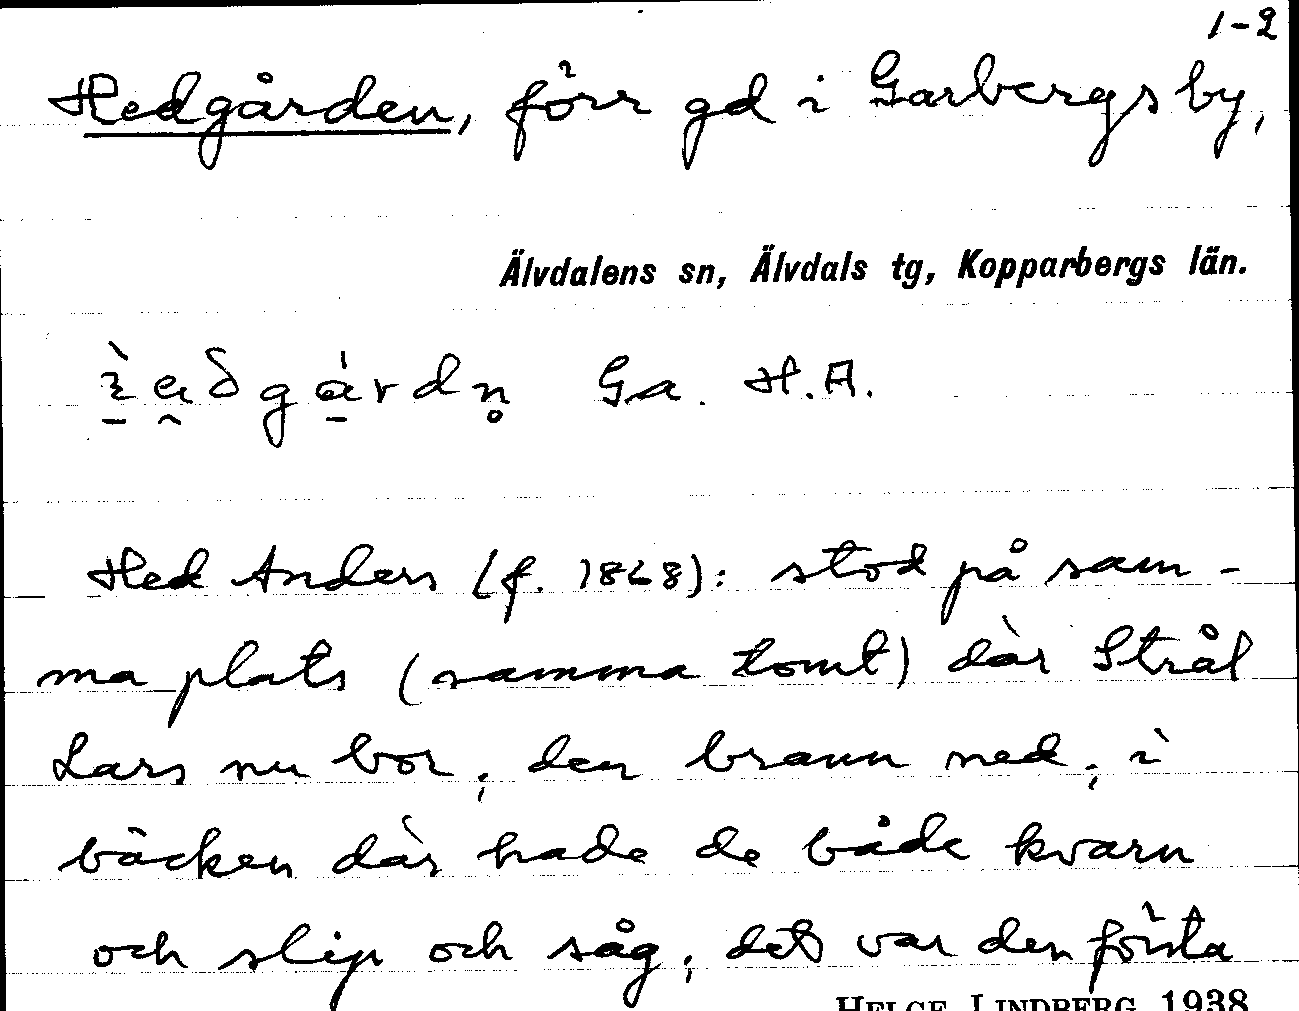 1-2
Hedgården, förr gd i Garbergs by,
Älvdalens sn, Älvdals tg, Kopparbergs län.
Ga. H.A.
Hed Anders (f. 1868): stod på sam-
ma plats (samma tomt) där Strål
Lars nu bor; den brann ned; i
bäcken där hade de både kvarn
och slip och såg; det var den första
HELGE LINDBERG 1938